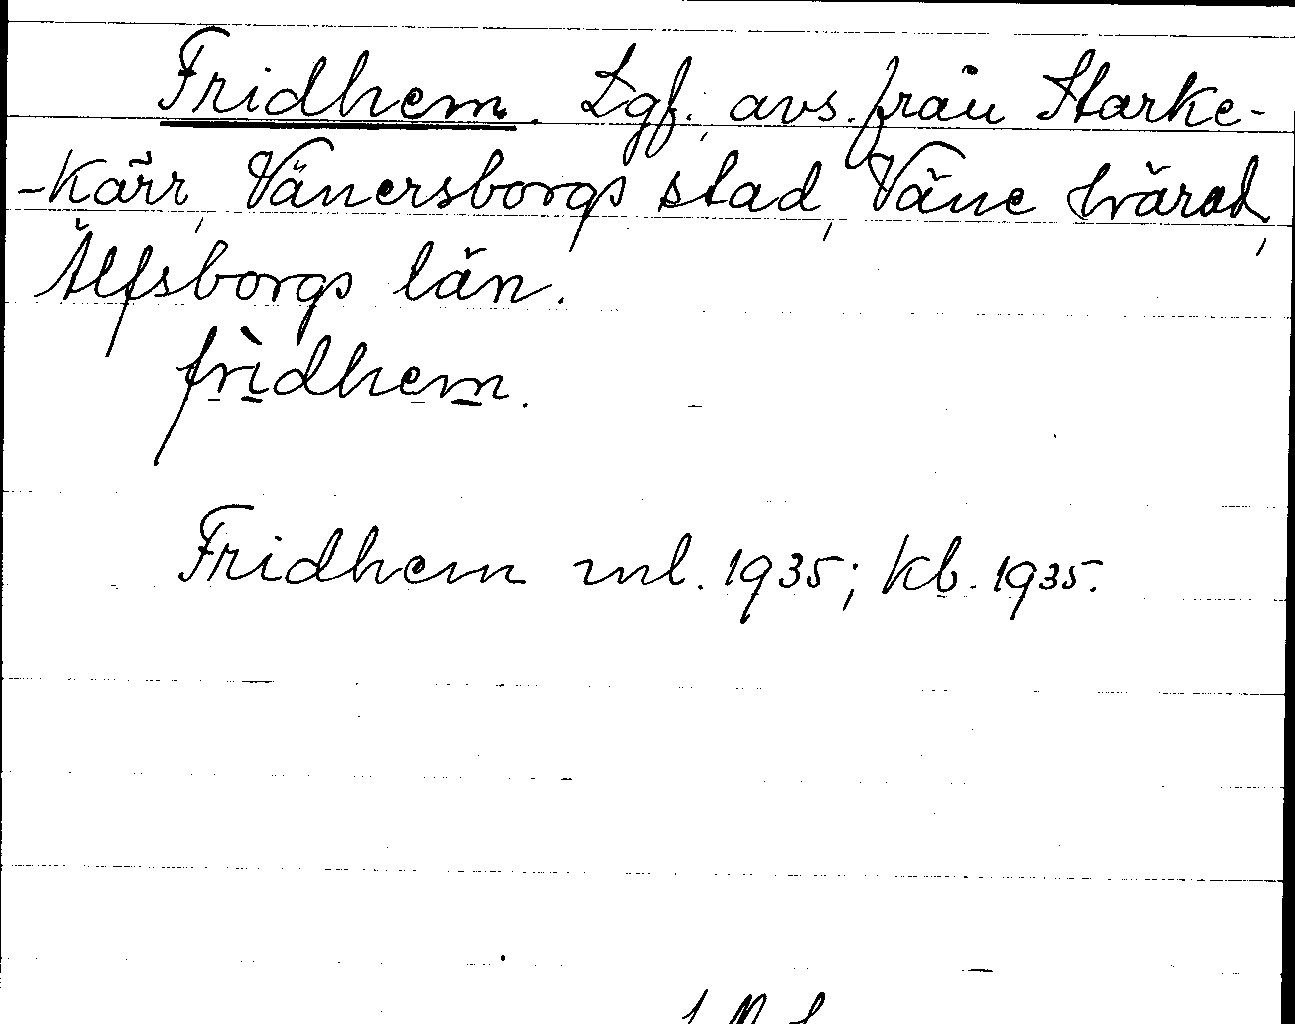 Fridhem. Lgf., avs. från Starke-
-Kärr, Vänersborgs stad, Väne härad,
Älfsborgs län.
frìdhem.
Fridhem ml. 1935; Kb. 1935.